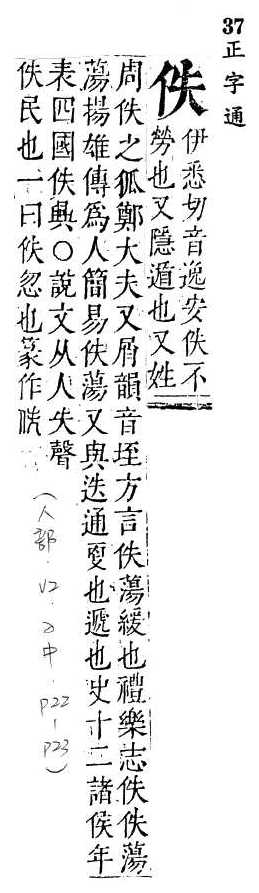 37 正字通
佚
伊悉切音逸安佚不
勞也又隱遁也又姓
周佚之狐鄭大夫又屑韻音垤方言佚蕩緩也禮樂志佚佚蕩
蕩揚雄傳爲人簡易佚蕩又與迭通更也遞也史十二諸侯年
表四國佚興○說文从人失聲
佚民也一曰佚忽也篆作
(人部.V2.子中.P22-P23)